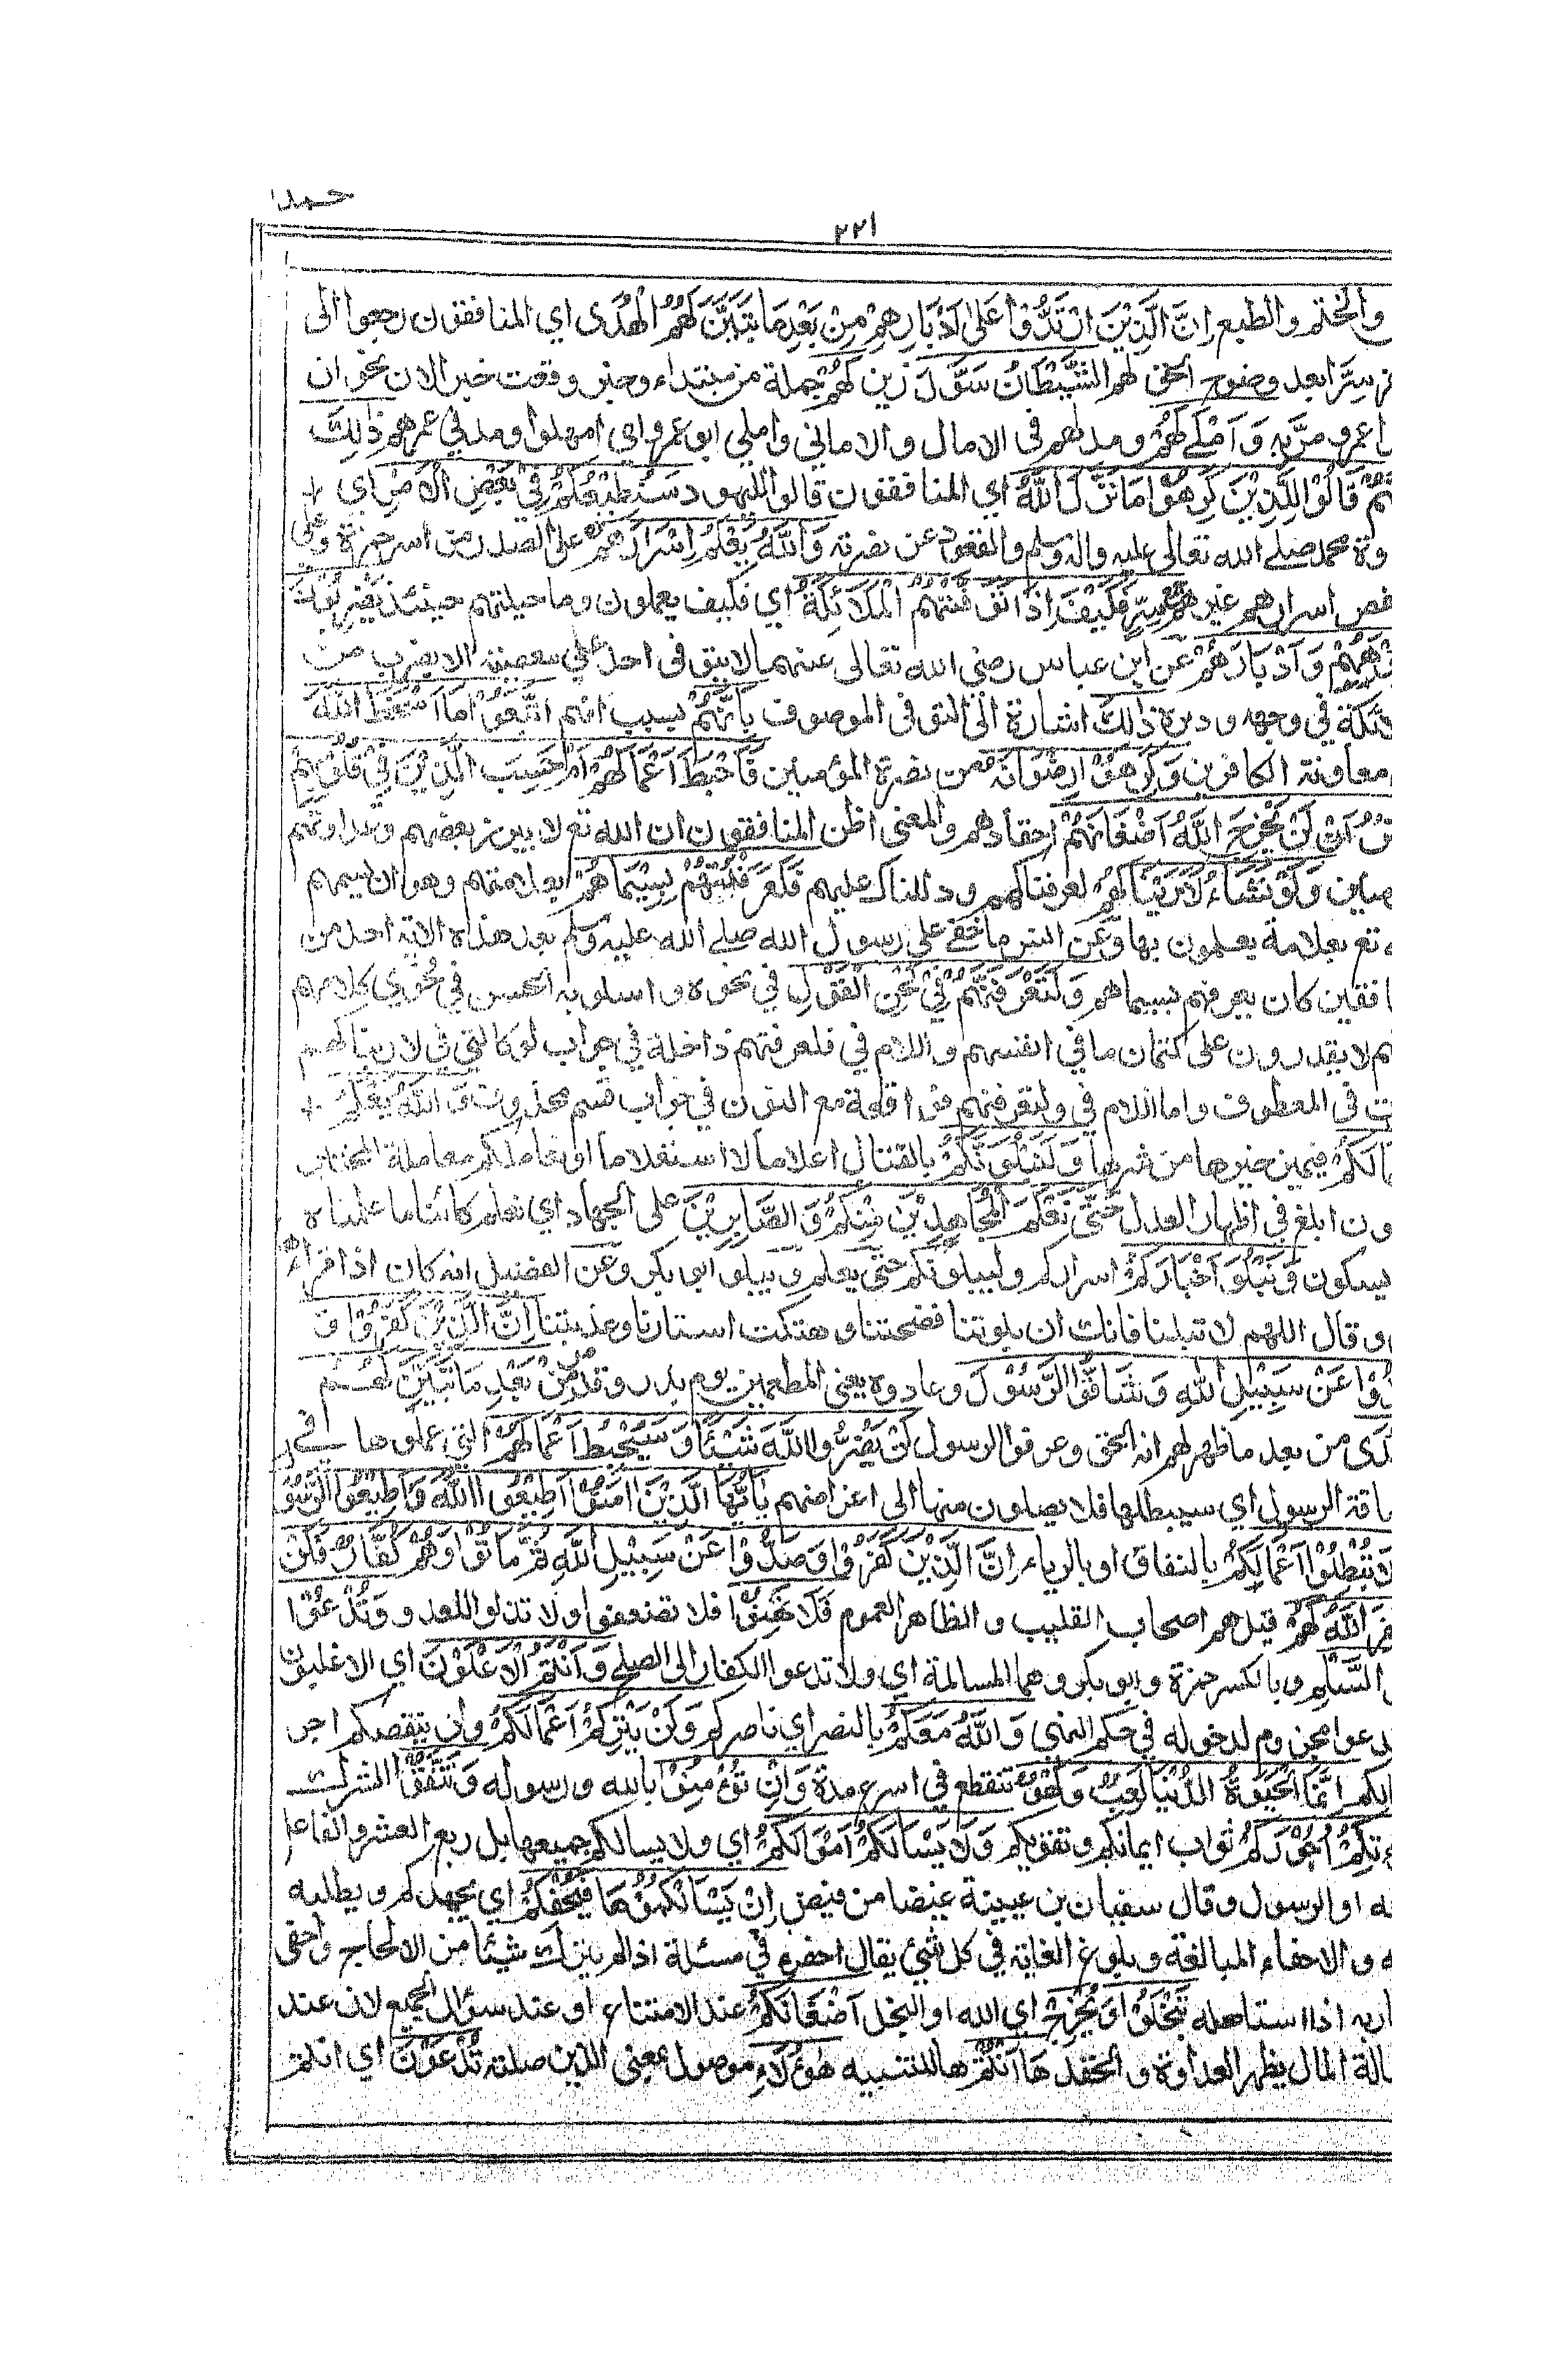 حمد
٢٢١
والختم والطبع اِنَّ الَّذِيْنَ ارْتَدُّوْا عَلٰى اَدْبَارِهِمْ مِنْ بَعْدِ مَا تَبَيَّنَ لَهُمُ الْهُدٰى اي المنافقون رجعوا الى
سرا بعد وضوح الحق لهم الشَّيْطَانُ سَوَّلَ زين لَهُمْ جملة من مبتداء وخبر وقعت خبر الان نحو ان
عمرو مر به وَاَمْلٰے لَهُمْ ومد لهم فى الامال والاماني واملي ابو عمرو اي امهلوا ومد في عمرهم ذٰلِكَ
قَالُوْا لِلَّذِيْنَ كَرِهُوْا مَا نَزَّلَ اللّٰهُ اي المنافقون قالوا لليهود سَنُطِيْعُكُمْ فِيْ بَعْضِ الْاَمْرِ اي
محمد صلے الله تعالى عليه واله وسلم والقعود عن نصرته وَاللّٰهُ يَعْلَمُ اِسْرَارَهُمْ على المصدر من اسر حمزة وعلي
اسرارهم غيرهم جمع سر فَكَيْفَ اِذَا تَوَفَّتْهُمُ الْمَلَائِكَةُ اي فكيف يعملون وما حيلتهم حينئذ يَضْرِبُوْنَ
وَاَدْبَارَهُمْ عن ابن عباس رضى الله تعالى عنهما لا يتوفى احد على معصية الا يضرب من
في وجهه ودبره ذٰلِكَ اشارة الى التوفى الموصوف بِاَنَّهُمُ بسبب انهم اتَّبَعُوْا مَا اَسْخَطَ اللّٰهَ
معاونة الكافرين وَكَرِهُوْا رِضْوَانَهُ من نصرة المؤمنين فَاَحْبَطَ اَعْمَالَهُمْ اَمْ حَسِبَ الَّذِيْنَ فِيْ قُلُوْبِهِمْ
اَنْ لَّنْ يُّخْرِجَ اللّٰهُ اَضْغَانَهُمْ احقادهم والمعنى اظن المنافقون ان الله تع لا يبرز بغضهم وعداوتهم
وَلَوْ نَشَاءُ لَاَرَيْنَاكَهُمْ لعرفناكهم ودللناك عليهم فَلَعَرَفْتَهُمْ بِسِيْمَاهُمْ بعلامتهم وهو ان يسمهم
تع بعلامة يعلمون بها وعن انس ما خفے على رسول الله صلے الله عليه وسلم بعد هذه الاية احد من
المنافقين كان يعرفهم بسيماهم وَلَتَعْرِفَنَّهُمْ فِيْ لَحْنِ الْقَوْلِ في نحوه واسلوبه الحسن في فحوى كلامهم
لا يقدرون على كتمان ما في انفسهم واللام في فلعرفتهم داخلة في جواب لو كالتي في لاريناكهم
فى المعطوف واما اللام في ولتعرفنهم فواقعة مع النون في جواب قسم محذوف وَاللّٰهُ يَعْلَمُ
فيميز خيرها من شرها وَلَنَبْلُوَنَّكُمْ بالقتال اعلاما لا استعلاما او نعاملكم معاملة المختبر
ابلغ في اظهار العدل حَتّٰى نَعْلَمَ الْمُجَاهِدِيْنَ مِنْكُمْ وَالصَّابِرِيْنَ على الجهاد اي نعلم كائنا ما علمناه
سيكون وَنَبْلُوَ اَخْبَارَكُمْ اسراركم وليبلونكم حتى يعلم ويبلو ابو بكر وعن الفضيل انه كان اذا قرأ
وقال اللهم لا تبلنا فانك ان بلوتنا فضحتنا وهتكت استارنا وعذبتنا اِنَّ الَّذِيْنَ كَفَرُوْا وَ
عَنْ سَبِيْلِ اللّٰهِ وَشَاقُّوا الرَّسُوْلَ وعادوه يعنى المطعمين يوم بدر وقد مر مِنْ بَعْدِ مَا تَبَيَّنَ لَهُمُ
من بعد ما ظهر لهم انه الحق وعرفوا الرسول لَنْ يَّضُرُّوا اللّٰهَ شَيْئًا وَسَيُحْبِطُ اَعْمَالَهُمْ التي عملوها في
الرسول اي سيبطلها فلا يصلون منها الى اغراضهم يَا اَيُّهَا الَّذِيْنَ اٰمَنُوْا اَطِيْعُوا اللّٰهَ وَاَطِيْعُوا الرَّسُوْ
تُبْطِلُوْا اَعْمَالَكُمْ بالنفاق او بالرياء اِنَّ الَّذِيْنَ كَفَرُوْا وَصَدُّوْا عَنْ سَبِيْلِ اللّٰهِ ثُمَّ مَاتُوْا وَهُمْ كُفَّارٌ فَلَنْ
اللّٰهُ لَهُمْ قيل هم اصحاب القليب والظاهر العموم فَلَا تَهِنُوْا فلا تضعفوا ولا تذلوا للعدو وَتَدْعُوْا
السَّلْمِ وبالكسر حمزة وابو بكر وهما المسالمة اي ولا تدعوا الكفار الى الصلح وَاَنْتُمُ الْاَعْلَوْنَ اي الاغلبون
مجزوم لدخوله في حكم النهي وَاللّٰهُ مَعَكُمْ بالنصر اي ناصركم وَلَنْ يَّتِرَكُمْ اَعْمَالَكُمْ ولن ينقصكم اجر
اِنَّمَا الْحَيٰوةُ الدُّنْيَا لَعِبٌ وَّلَهْوٌ تنقطع في اسرع مدة وَاِنْ تُؤْمِنُوْا بالله ورسوله وَتَتَّقُوْا الشرك
اُجُوْرَكُمْ ثواب ايمانكم وتقويكم وَلَا يَسْاَلْكُمْ اَمْوَالَكُمْ اي ولا يسالكم جميعها بل ربع العشر والفاعل
او الرسول وقال سفيان بن عيينة غيضا من فيض اِنْ يَّسْاَلْكُمُوْهَا فَيُحْفِكُمْ اي يجهدكم ويطلبه
والاحفاء المبالغة وبلوغ الغاية في كل شيئ يقال احفاه في مسئلة اذا لم يترك شيئا من الالحاح واحفى
شاربه اذا استاصله تَبْخَلُوْا وَيُخْرِجْ اي الله او البخل اَضْغَانَكُمْ عند الامتناع او عند سؤال الجميع لان عند
المال يظهر العداوة والحقد هَا اَنْتُمْ ها للتنبيه هٰؤُلَاءِ موصول بمعنى الذين صلته تُدْعَوْنَ اي انتم